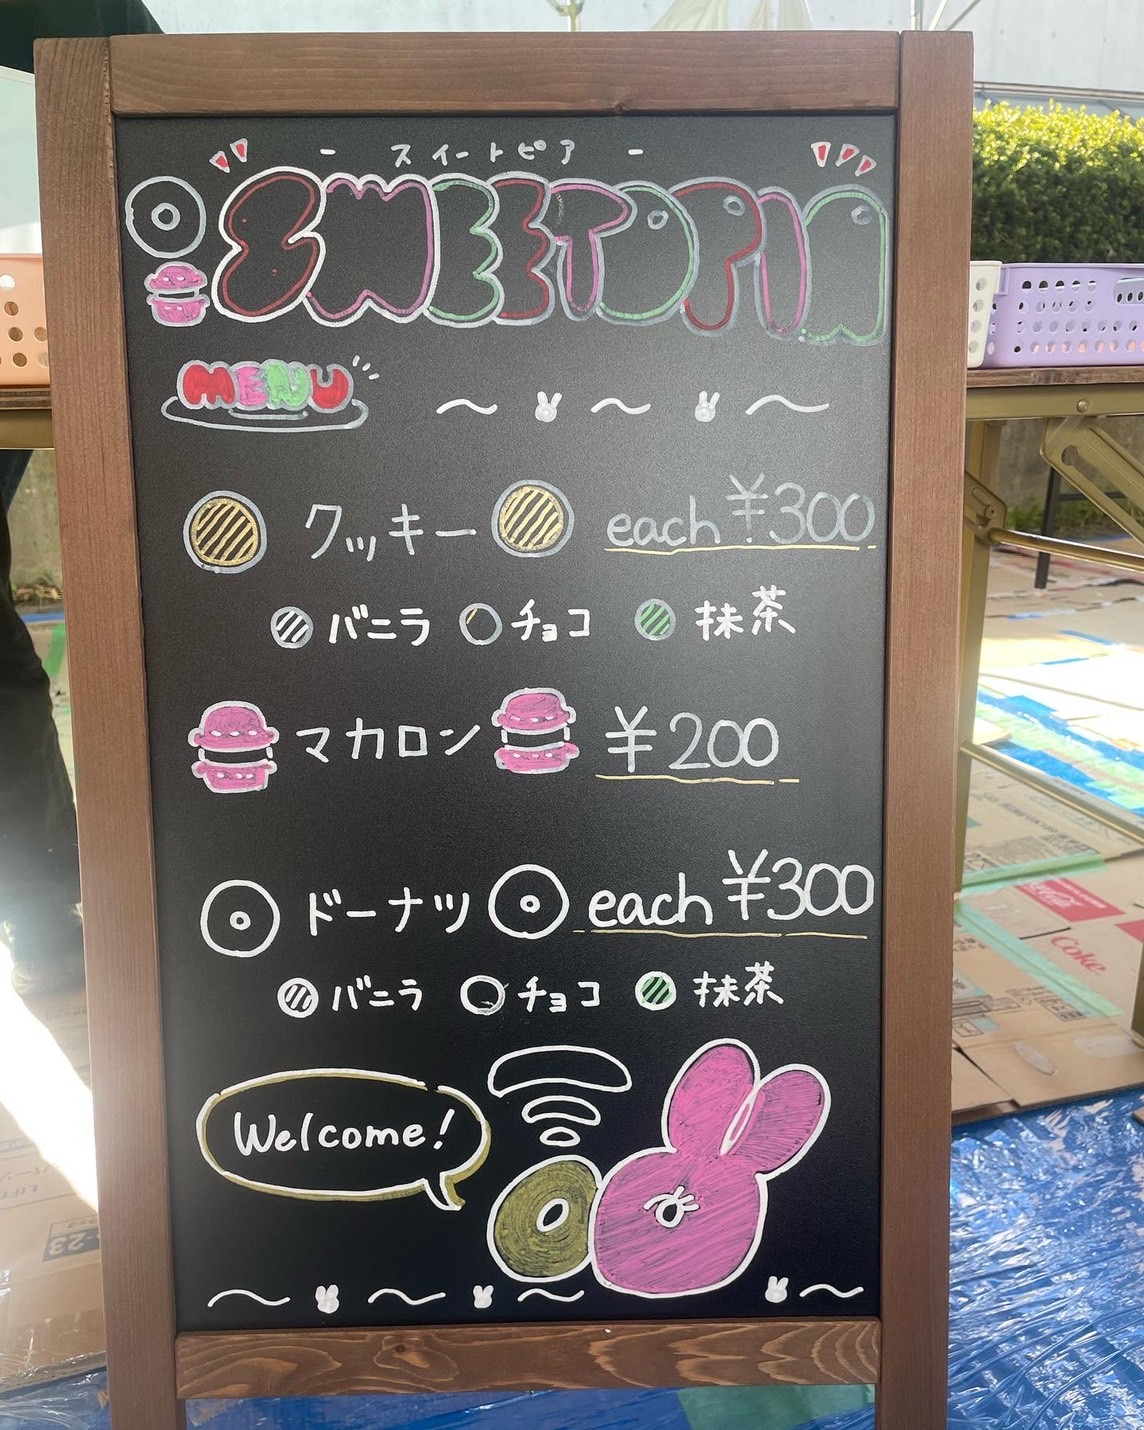 - スイートピア -
SWEETOPIA
MENU
クッキー each ¥300
バニラ チョコ 抹茶
マカロン ¥200
ドーナツ each ¥300
バニラ チョコ 抹茶
Welcome!
Coke